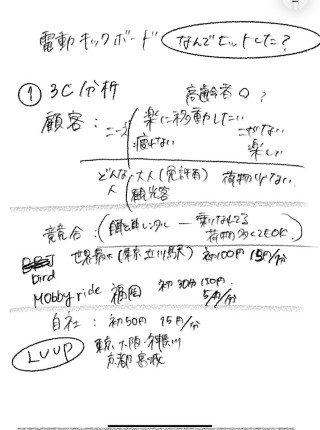 電動キックボード なんでヒットした?
① 3C分析 高齢者の ?
顧客: ニーズ 楽に移動したい
疲れない こがない
楽しい
どんな人 大人(免許有) 荷物少ない
観光客
競合: レンタル ー 乗りなれてる
荷物多くてもOK
Bird 世界最大(東京立川) 初100円 15円/分
Mobbyride 福岡 初30分150円
5円/分
自社: 初50円 15円/分
LUUP 東京 大阪 神奈川
京都 宮城